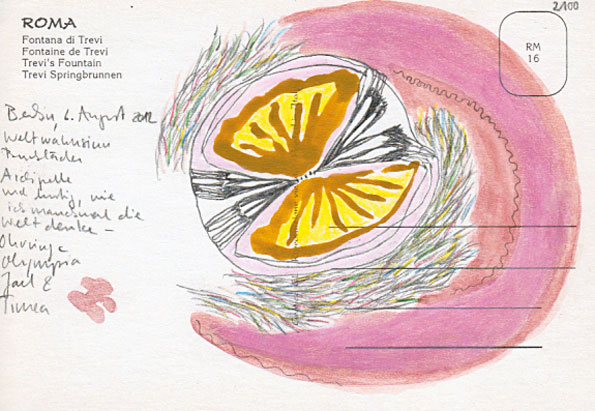 ROMA
Fontana di Trevi
Fontaine de Trevi
Trevi's Fountain
Trevi Springbrunnen
2/100
RM
16
Berlin, 6. August 2012
Weltwahnsinn
Archipele
und lustig, wie
ich manchmal die
Welt denke –
Olympia